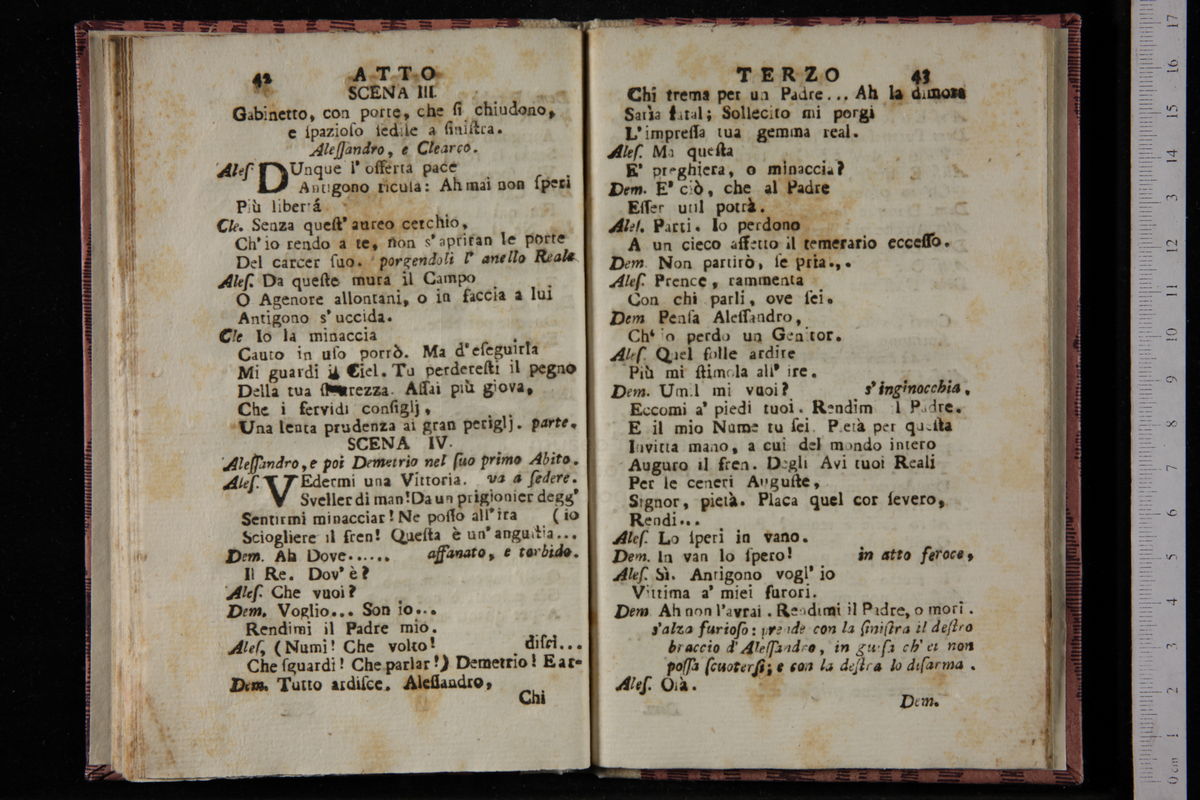 42 ATTO
SCENA III.
Gabinetto, con porte, che ſi chiudono,
e ſpazioſo ſedile a ſiniſtra.
Aleſſandro, e Clearco.
Aleſ DUnque l' offerta pace
Antigono ricuſa: Ah mai non ſperi
Più libertá
Cle. Senza queſt' aureo cerchio,
Ch' io rendo a te, non s' apriran le porte
Del carcer ſuo. porgendoli l' anello Reale
Aleſ. Da queſte mura il Campo
O Agenore allontani, o in faccia a lui
Antigono s' uccida.
Cle Io la minaccia
Cauto in uſo porrò. Ma d' eſeguirla
Mi guardi il Ciel. Tu perdereſti il pegno
Della tua ſicurezza. Aſſai più giova,
Che i fervidi conſiglj,
Una lenta prudenza ai gran periglj. parte.
SCENA IV.
Aleſſandro, e poi Demetrio nel ſuo primo Abito.
Aleſ. VEdermi una Vittoria. va a ſedere.
Sveller di man! Da un prigionier degg'
Sentirmi minacciar! Ne poſſo all' ira (io
Sciogliere il fren! Queſta è un' anguſtia...
Dem. Ah Dove...... affanato, e torbido.
Il Re. Dov' è?
Aleſ. Che vuoi?
Dem. Voglio... Son io...
Rendimi il Padre mio.
Aleſ, (Numi! Che volto! diſci...
Che ſguardi! Che parlar!) Demetrio! E ar-
Dem. Tutto ardiſce. Aleſſandro,
Chi
TERZO 43
Chi trema per un Padre... Ah la dimora
Saria fatal; Sollecito mi porgi
L' impreſſa tua gemma real.
Aleſ. Ma queſta
E' preghiera, o minaccia?
Dem. E' ciò, che al Padre
Eſſer util potrà.
Aleſ. Parti. Io perdono
A un cieco affetto il temerario ecceſſo.
Dem. Non partirò, ſe pria.,.
Aleſ. Prence, rammenta
Con chi parli, ove ſei.
Dem Penſa Aleſſandro,
Ch' io perdo un Genitor.
Aleſ. Quel folle ardire
Più mi ſtimola all' ire.
Dem. Umil mi vuoi? s' inginocchia.
Eccomi a' piedi tuoi. Rendim il Padre.
E il mio Nume tu ſei. Pietà per queſta
Invitta mano, a cui del mondo intero
Auguro il fren. Degli Avi tuoi Reali
Per le ceneri Auguſte,
Signor, pietà. Placa quel cor ſevero,
Rendi...
Aleſ. Lo ſperi in vano.
Dem. In van lo ſpero! in atto feroce,
Aleſ. Sì. Antigono vogl' io
Vittima a' miei furori.
Dem. Ah non l' avrai. Rendimi il Padre, o mori.
s' alza furioſo: prende con la ſiniſtra il deſtro
braccio d' Aleſſandro, in guiſa ch' ei non
poſſa ſcuoterſi; e con la deſtra lo diſarma.
Aleſ. Olà.
Dem.